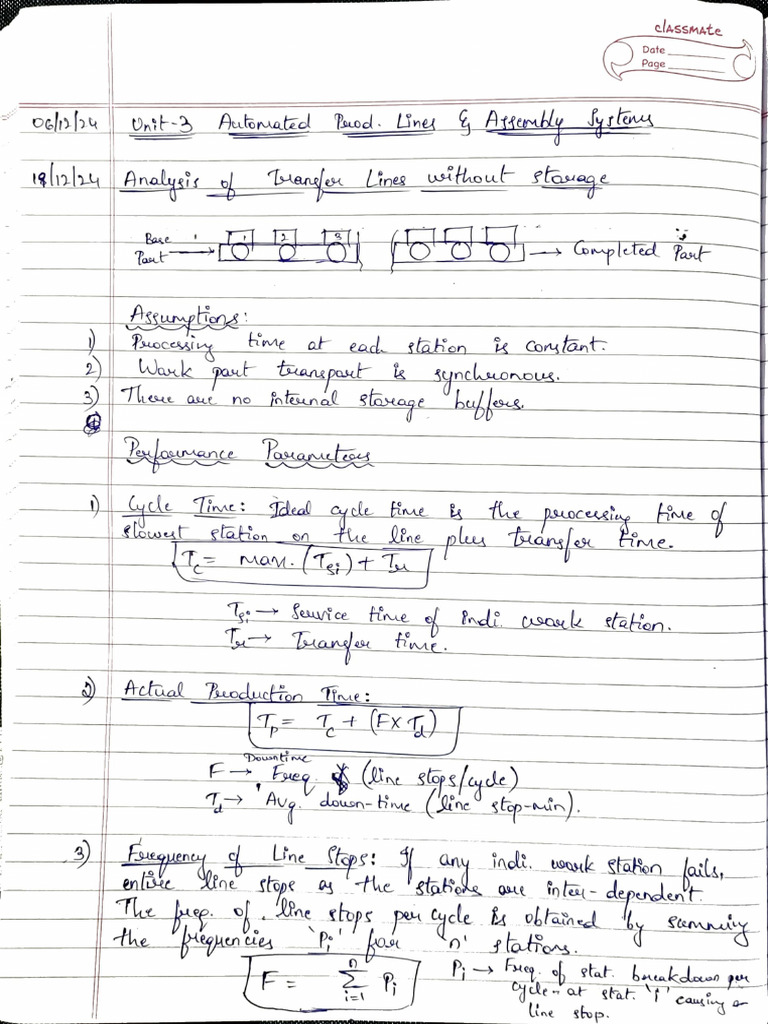 classmate
Date
Page
06/12/24 Unit-3 Automated Prod. Lines & Assembly Systems
18/12/24 Analysis of Transfer Lines without storage
Base Part → 1 2 3 → Completed Part
Assumptions:
1) Processing time at each station is constant.
2) Work part transport is synchronous.
3) There are no internal storage buffers.
Performance Parameters
1) Cycle Time: Ideal cycle time is the processing time of
slowest station on the line plus transfer time.
Tc = max. (Tsi) + Tr
Tsi → Service time of indi. work station.
Tr → Transfer time.
2) Actual Production Time:
Tp = Tc + (F x Td)
F → Downtime Freq. (line stops/cycle)
Td → Avg. down-time (line stop-min).
3) Frequency of Line Stops: If any indi. work station fails,
entire line stops as the stations are inter-dependent.
The freq. of line stops per cycle is obtained by summing
the frequencies 'Pi' for 'n' stations.
F = n Σ i=1 Pi
Pi → Freq. of stat. breakdown per
cycle at stat. 'i' causing a
line stop.